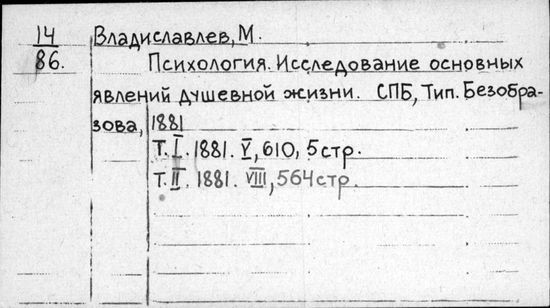 14
86.
Владиславлев, М.
Психология. Исследование основных
явлений душевной жизни. СПБ, Тип. Безобра-
зова, 1881
Т. I. 1881. V, 610, 5 стр.
Т. II. 1881. VIII, 564 стр.